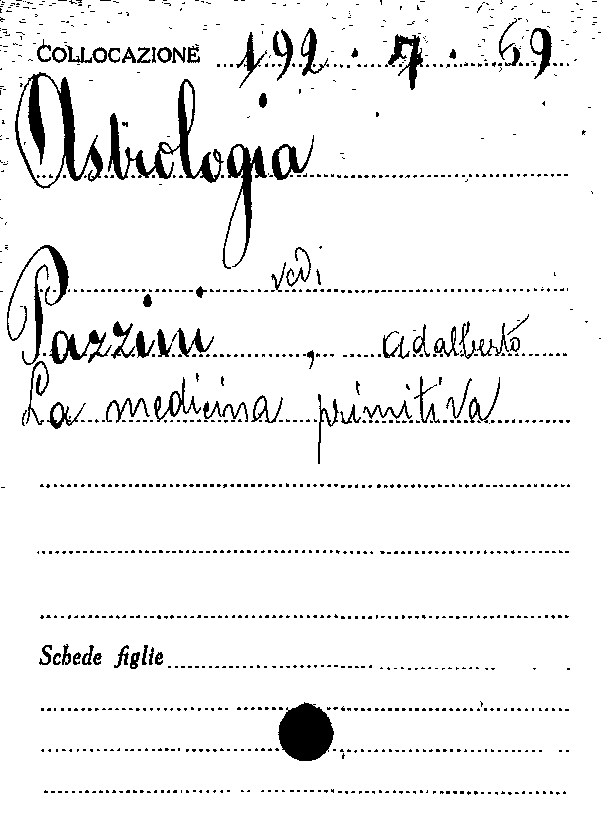 COLLOCAZIONE 192 . 7 . 69
Astrologia
vedi
Pazzini , Adalberto
La medicina primitiva
Schede figlie